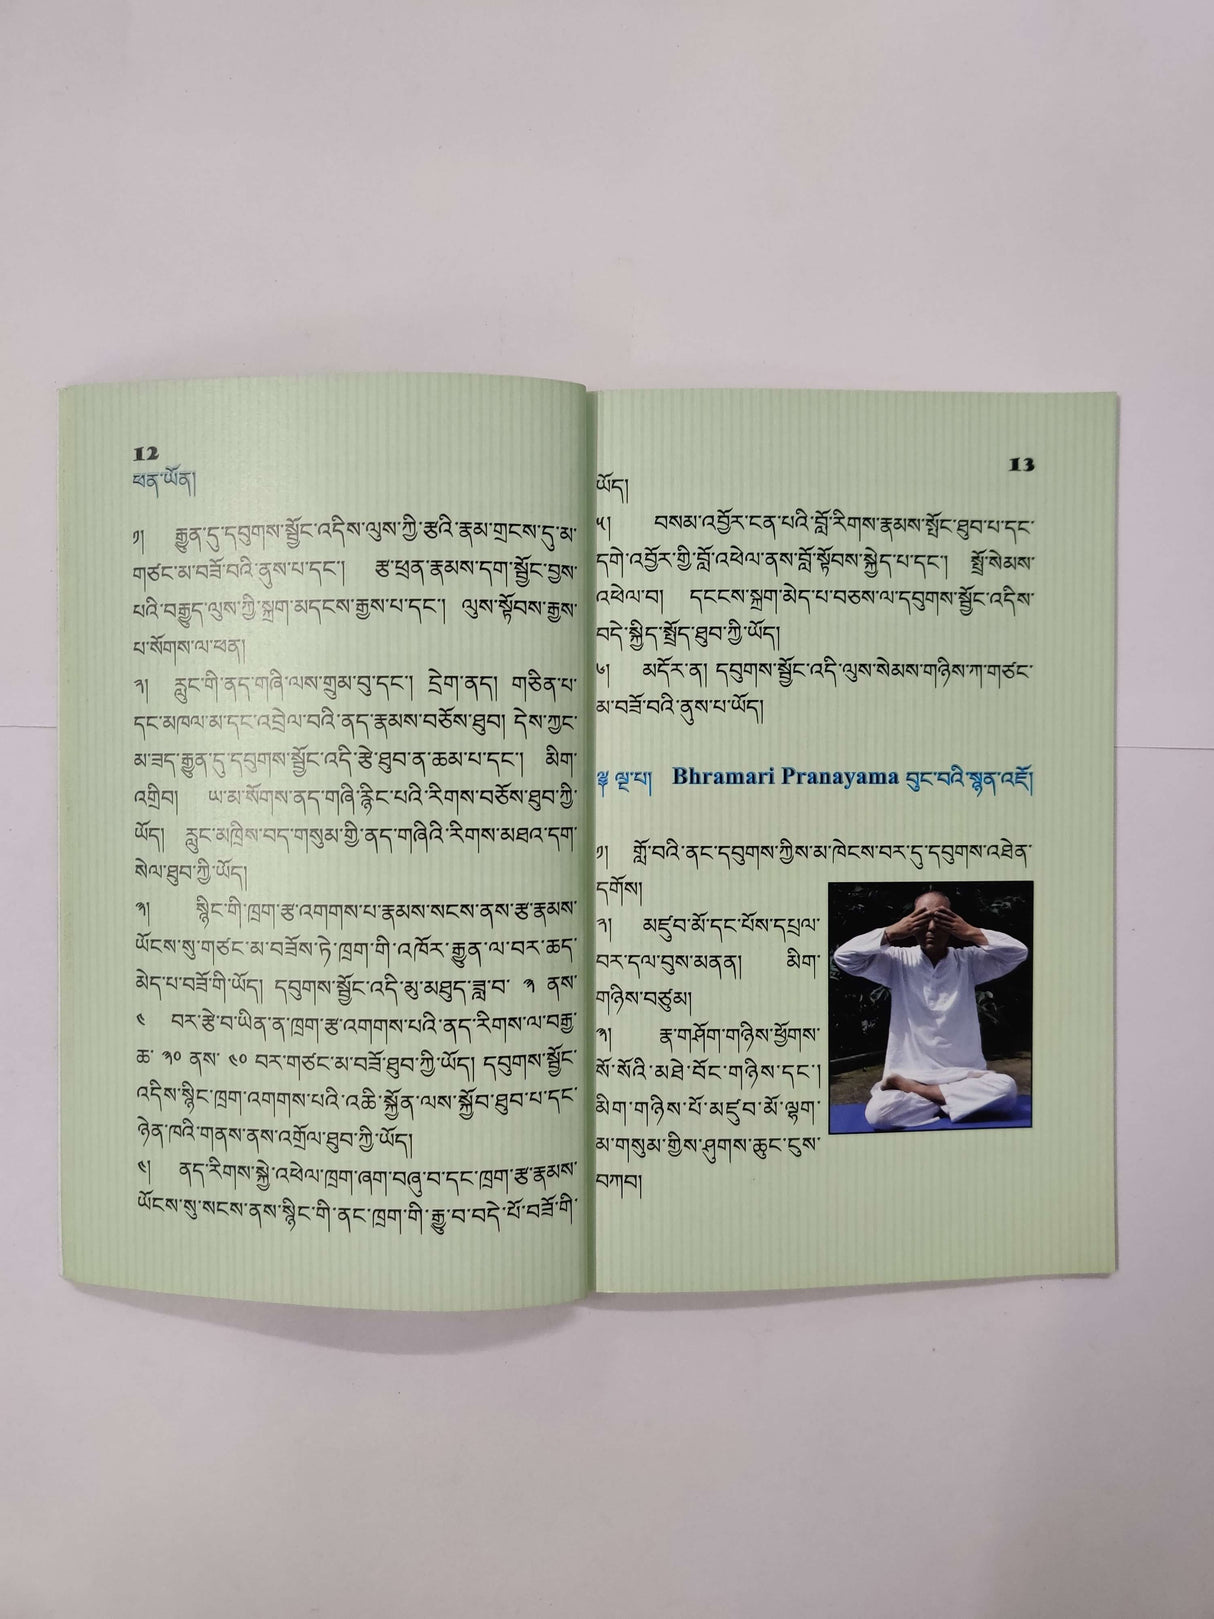 12
ཕན་ཡོན།
༡། རྒྱུན་དུ་དབུགས་སྦྱོང་འདིས་ལུས་ཀྱི་རྩའི་རྣམ་གྲངས་དུ་མ་
གཙང་མ་བཟོ་བའི་ནུས་པ་དང་། རྩ་ཕྲན་རྣམས་དག་སྦྱོང་བྱས་
པའི་བརྒྱུད་ལུས་ཀྱི་སྐྲག་མདངས་རྒྱས་པ་དང་། ལུས་སྟོབས་རྒྱས་
པ་སོགས་ལ་ཕན།
༢། རླུང་གི་ནད་གཞི་ལས་གྲུམ་བུ་དང་། དྲེག་ནད། གཅིན་པ་
དང་མཁལ་མ་དང་འབྲེལ་བའི་ནད་རྣམས་བཅོས་ཐུབ། དེས་ཀྱང་
མ་ཟད་རྒྱུན་དུ་དབུགས་སྦྱོང་འདི་རྩེ་ཐུབ་ན་ཆམ་པ་དང་། མིག་
འགྲིབ། ཡ་མ་སོགས་ནད་གཞི་རྙིང་པའི་རིགས་བཅོས་ཐུབ་ཀྱི་
ཡོད། རླུང་མཁྲིས་བད་གསུམ་གྱི་ནད་གཞིའི་རིགས་མཐའ་དག་
སེལ་ཐུབ་ཀྱི་ཡོད།
༣། སྙིང་གི་ཁྲག་རྩ་འགགས་པ་རྣམས་སངས་ནས་རྩ་རྣམས་
ཡོངས་སུ་གཙང་མ་བཟོས་ཏེ་ཁྲག་གི་འཁོར་རྒྱུན་ལ་བར་ཆད་
མེད་པ་བཟོ་གི་ཡོད། དབུགས་སྦྱོང་འདི་མུ་མཐུད་ཟླ་བ་ ༣ ནས་
༤ བར་རྩེ་བ་ཡིན་ན་ཁྲག་རྩ་འགགས་པའི་ནད་རིགས་ལ་བརྒྱ་
ཆ་ ༣༠ ནས་ ༤༠ བར་གཙང་མ་བཟོ་ཐུབ་ཀྱི་ཡོད། དབུགས་སྦྱོང་
འདིས་སྙིང་ཁྲག་འགགས་པའི་འཆི་སྐྱོན་ལས་སྐྱོབ་ཐུབ་པ་དང་
ཉེན་ཁའི་གནས་ནས་འགྲོལ་ཐུབ་ཀྱི་ཡོད།
༤། ནད་རིགས་སྐྱེ་འཕེལ་ཁྲག་ཞག་བཞུ་བ་དང་ཁྲག་རྩ་རྣམས་
ཡོངས་སུ་སངས་ནས་སྙིང་གི་ནང་ཁྲག་གི་རྒྱུ་བ་བདེ་པོ་བཟོ་གི་
13
ཡོད།
༥། བསམ་འབྱོར་ངན་པའི་བློ་རིགས་རྣམས་སྤོང་ཐུབ་པ་དང་
དགེ་འབྱོར་གྱི་བློ་འཕེལ་ནས་བློ་སྟོབས་སྐྱེད་པ་དང་། སྤྲོ་སེམས་
འཕེལ་བ། དངངས་སྐྲག་མེད་པ་བཅས་ལ་དབུགས་སྦྱོང་འདིས་
བདེ་སྐྱིད་སྤྲོད་ཐུབ་ཀྱི་ཡོད།
༦། མདོར་ན། དབུགས་སྦྱོང་འདི་ལུས་སེམས་གཉིས་ཀ་གཙང་
མ་བཟོ་བའི་ནུས་པ་ཡོད།
ལྔ་པ། Bhramari Pranayama བུང་བའི་སྙན་འཇོ།
༡། གློ་བའི་ནང་དབུགས་ཀྱིས་མ་ཁེངས་བར་དུ་དབུགས་འཐེན་
དགོས།
༢། མཛུབ་མོ་དང་པོས་དཔྲལ་
བར་དལ་བུས་མནན། མིག་
གཉིས་བཙུམ།
༣། རྣ་གཤོག་གཉིས་ཕྱོགས་
སོ་སོའི་མཐེ་བོང་གཉིས་དང་།
མིག་གཉིས་པོ་མཛུབ་མོ་ལྷག་
མ་གསུམ་གྱིས་ཤུགས་ཆུང་ངུས་
བཀབ།